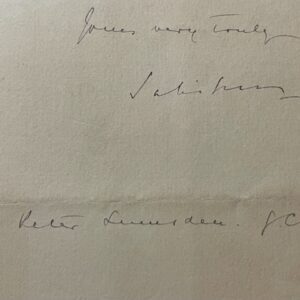 Yours very truly
Salisbury
Peter Lumsden. G.C